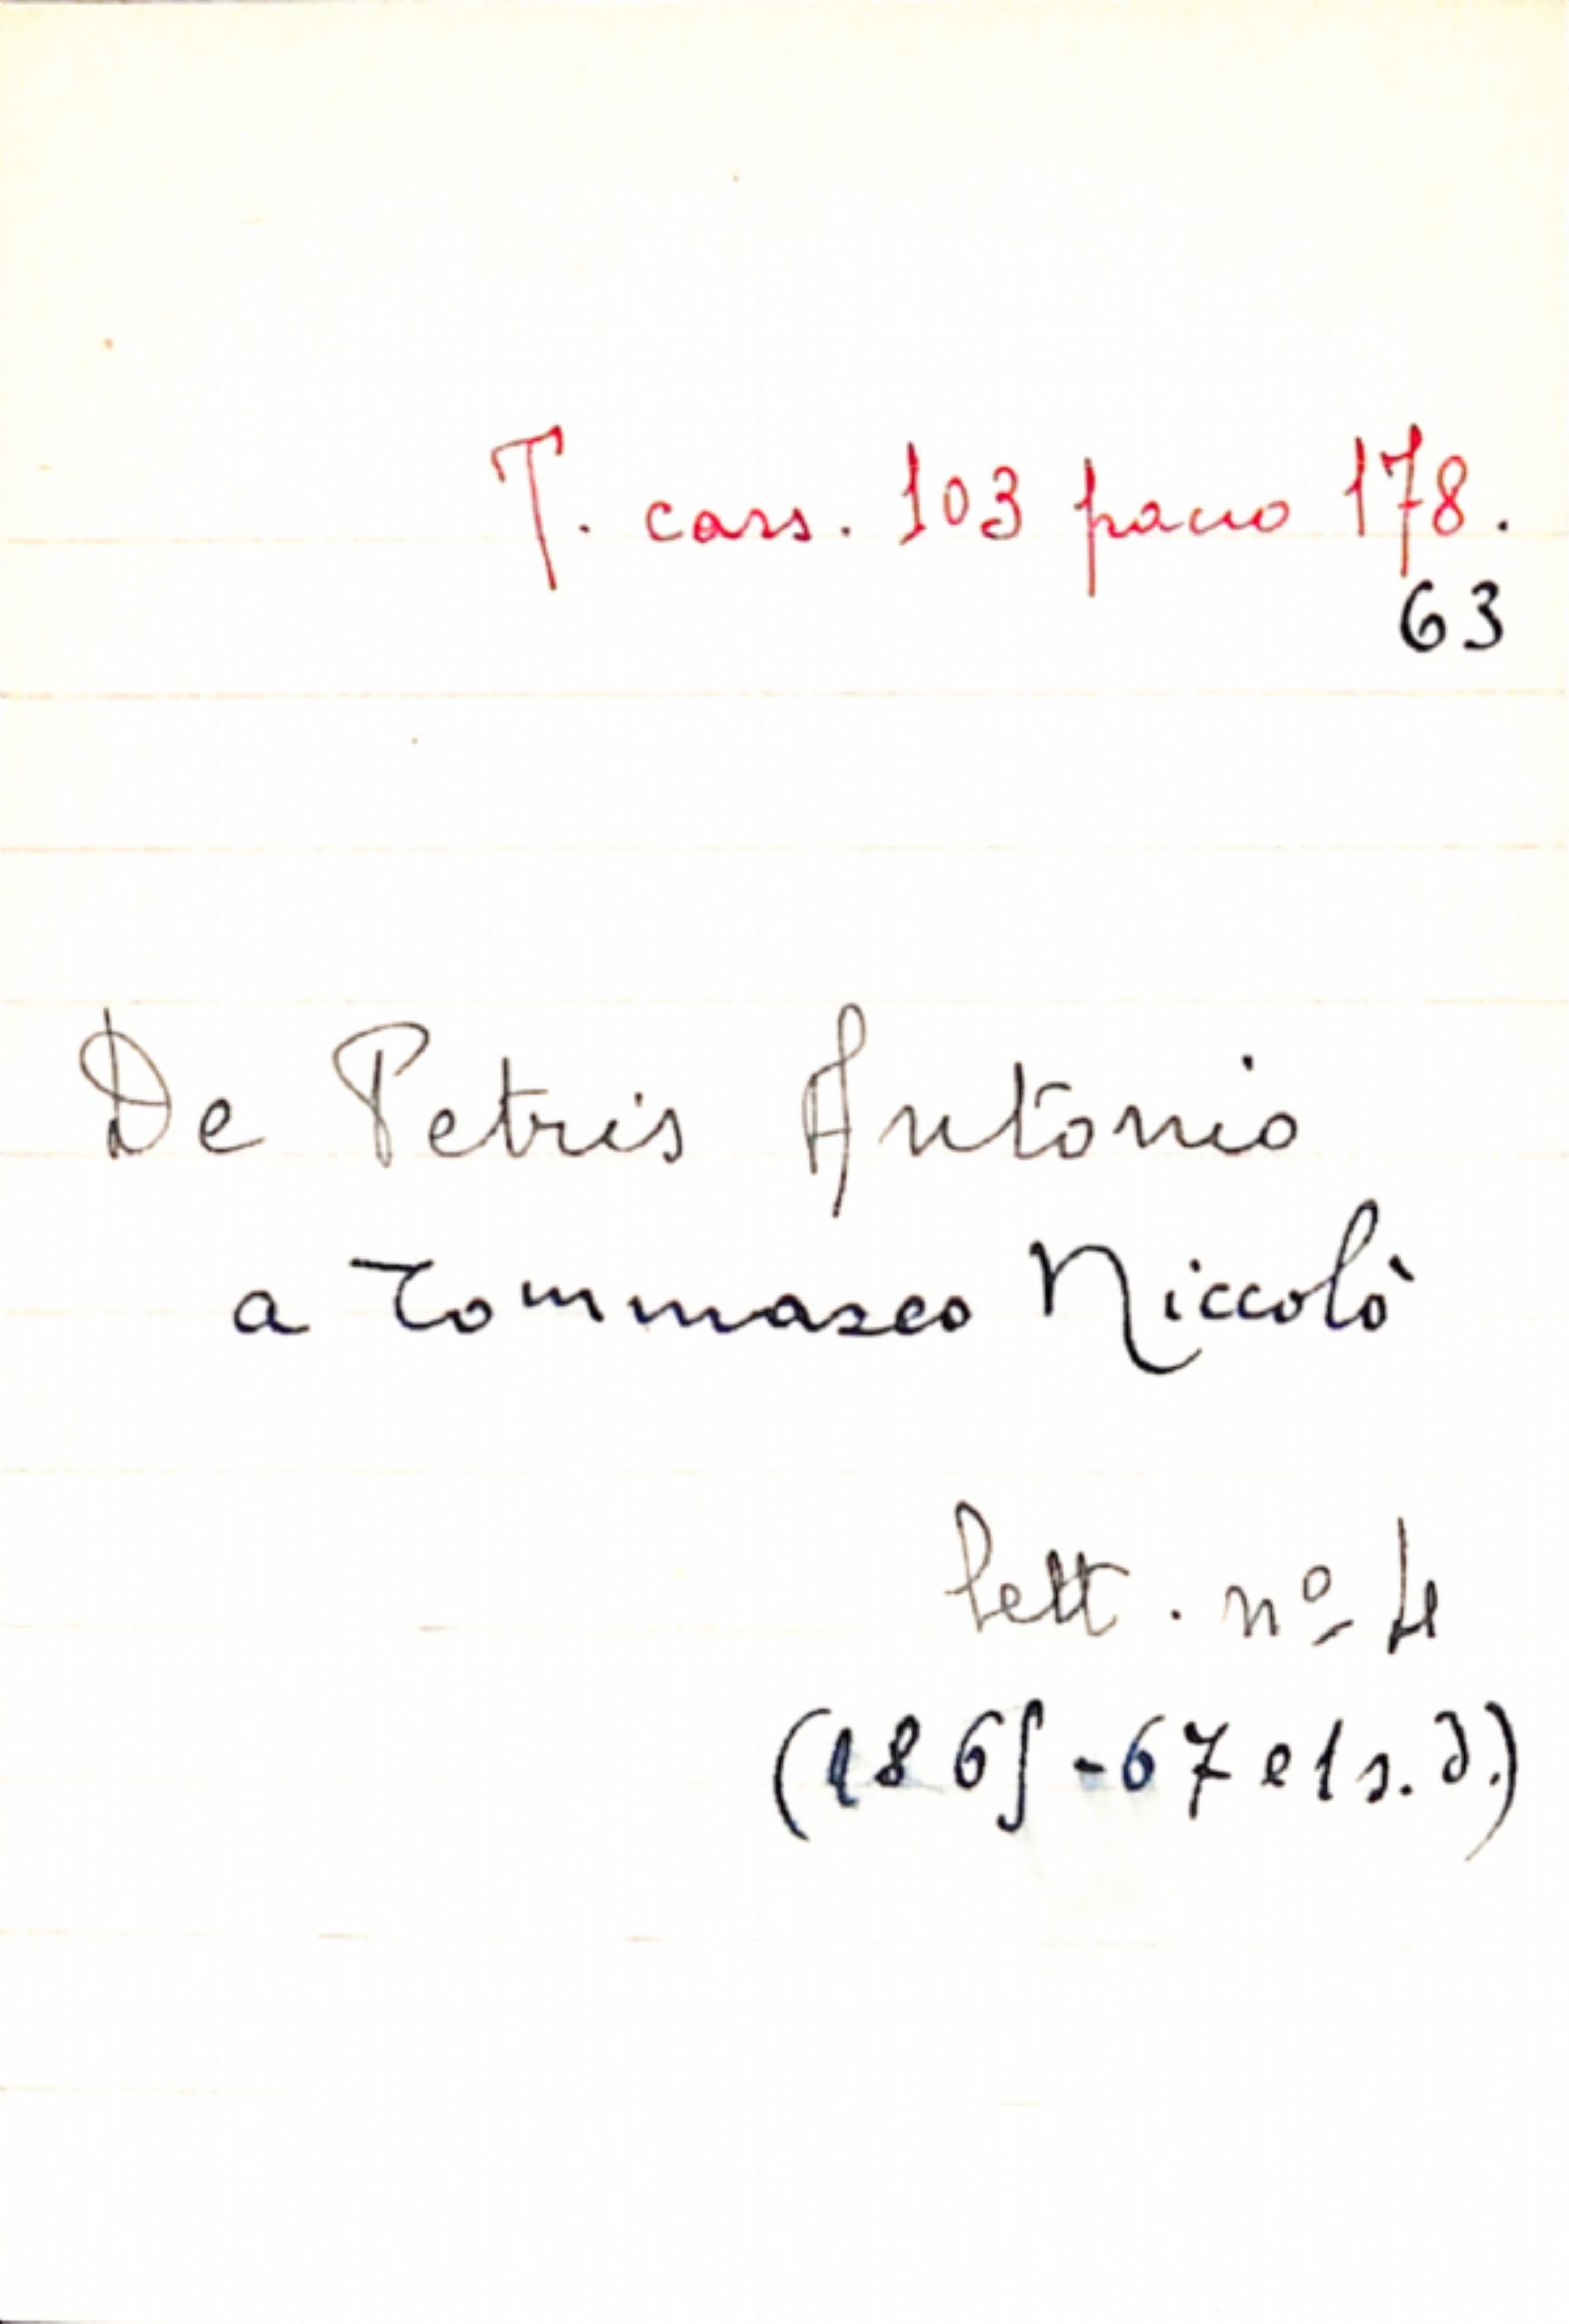 T. cass. 103 pacco 178.
63
De Petris Antonio
a Tommaseo Niccolò
lett. nº 4
(1865-67 e 1 s.d.)